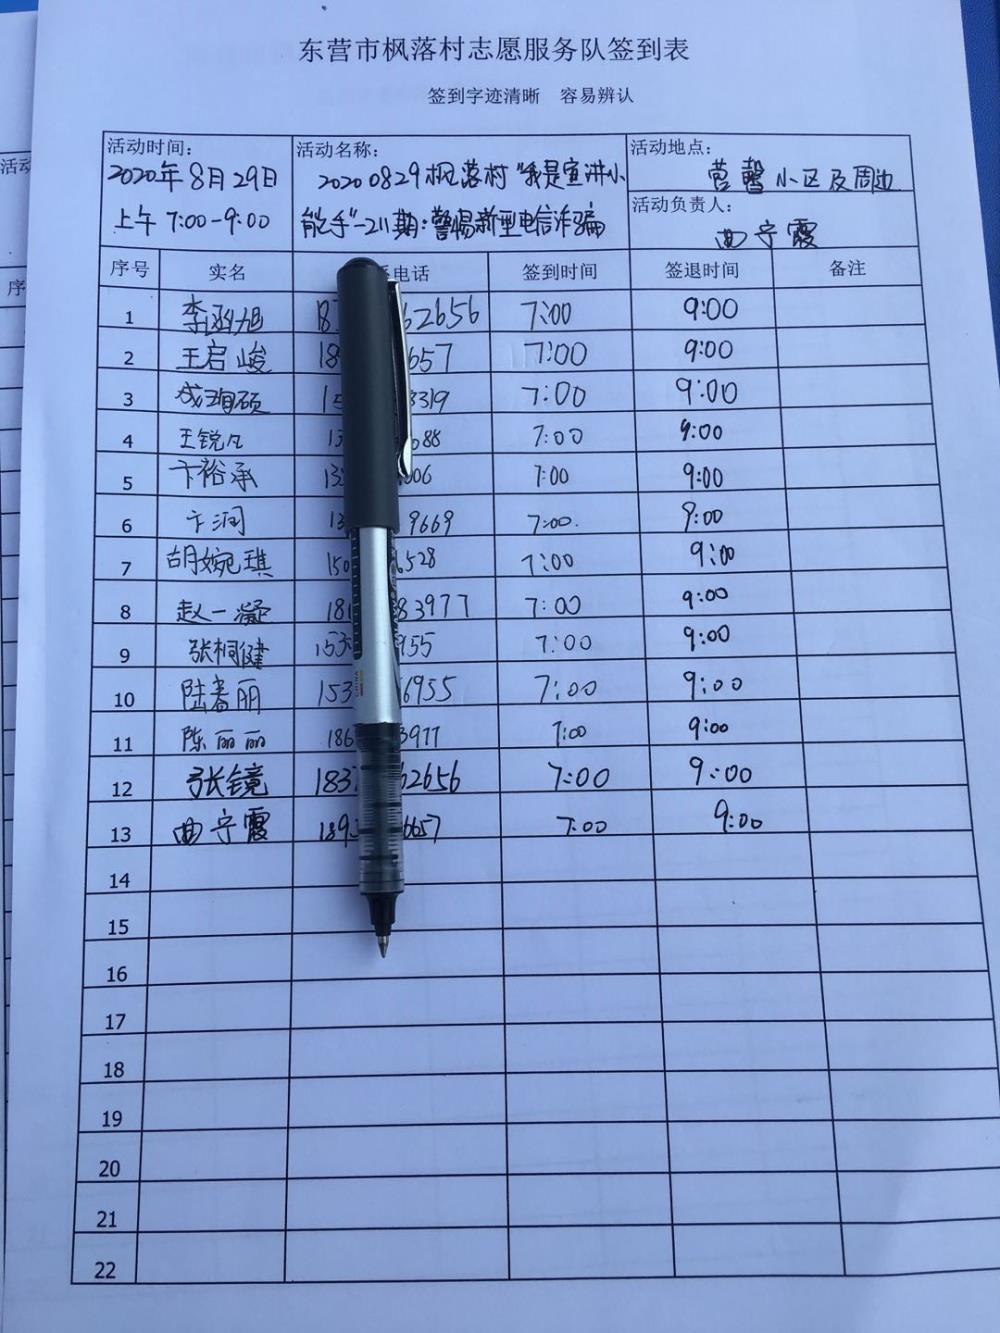 东营市枫落村志愿服务队签到表
签到字迹清晰 容易辨认
活动时间：
2020年8月29日
上午 7:00-9:00
活动名称：
20200829枫落村“我是宣讲小
能手”-211期：警惕新型电信诈骗
活动地点：
营馨小区及周边
活动负责人：
曲宁霞
序号 实名 电话 签到时间 签退时间 备注
1 李函旭 18 62656 7:00 9:00
2 王启峻 18 657 7:00 9:00
3 成珺硕 15 3319 7:00 9:00
4 王锐凡 13 688 7:00 9:00
5 卞裕承 13 006 7:00 9:00
6 卞润 13 9669 7:00 9:00
7 胡婉琪 150 6528 7:00 9:00
8 赵一凝 181 83977 7:00 9:00
9 张桐健 153 955 7:00 9:00
10 陆春丽 153 6955 7:00 9:00
11 陈丽丽 186 3977 7:00 9:00
12 张镜 183 62656 7:00 9:00
13 曲宁霞 189 6657 7:00 9:00
14
15
16
17
18
19
20
21
22
活动
序